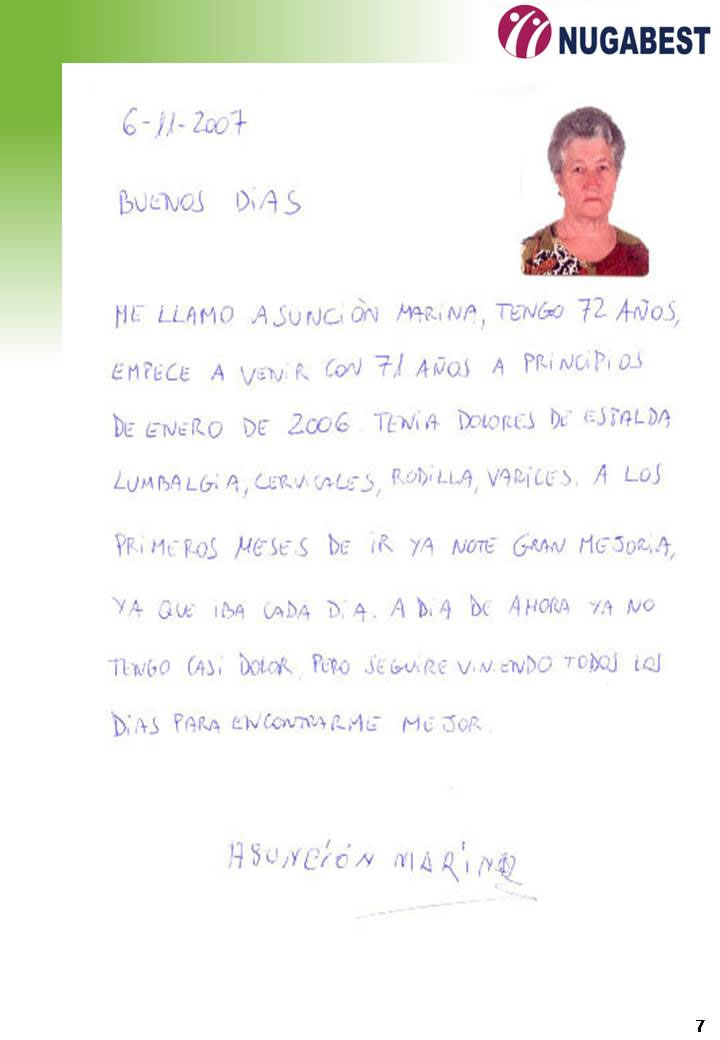 NUGABEST
6-11-2007
BUENOS DiAS
ME LLAMO ASUNCiÒN MARiNA, TENGO 72 AÑOS,
EMPECE A VENiR CON 71 AÑOS A PRiNCiPiOS
DE ENERO DE 2006. TENiA DOLORES DE ESPALDA
LUMBALGiA, CERViCALES, RODiLLA, VARiCES. A LOS
PRiMEROS MESES DE iR YA NOTE GRAN MEJORiA,
YA QUE IBA CADA DiA. A DiA DE AHORA YA NO
TENGO CASi DOLOR, PERO SEGUiRE ViNiENDO TODOS LOS
DiAS PARA ENCONTRARME MEJOR.
ASUNCIÓN MARiNA
7